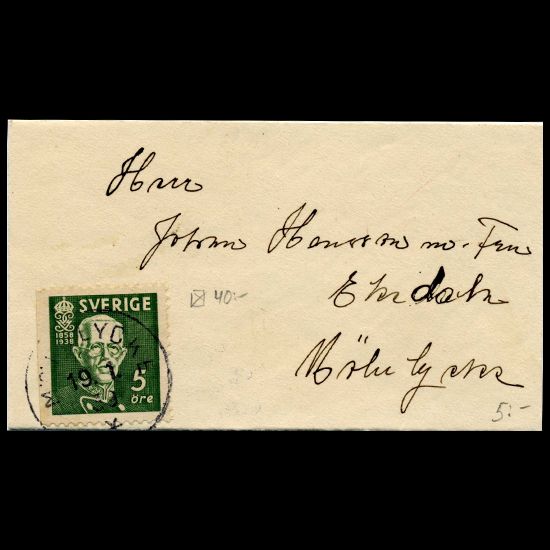 Herr
Johan Hansson m. Fru
Ekdala
Mölnlycke
40:-
5:-
SVERIGE
1858
1938
5
öre
LYCKE
19. 1